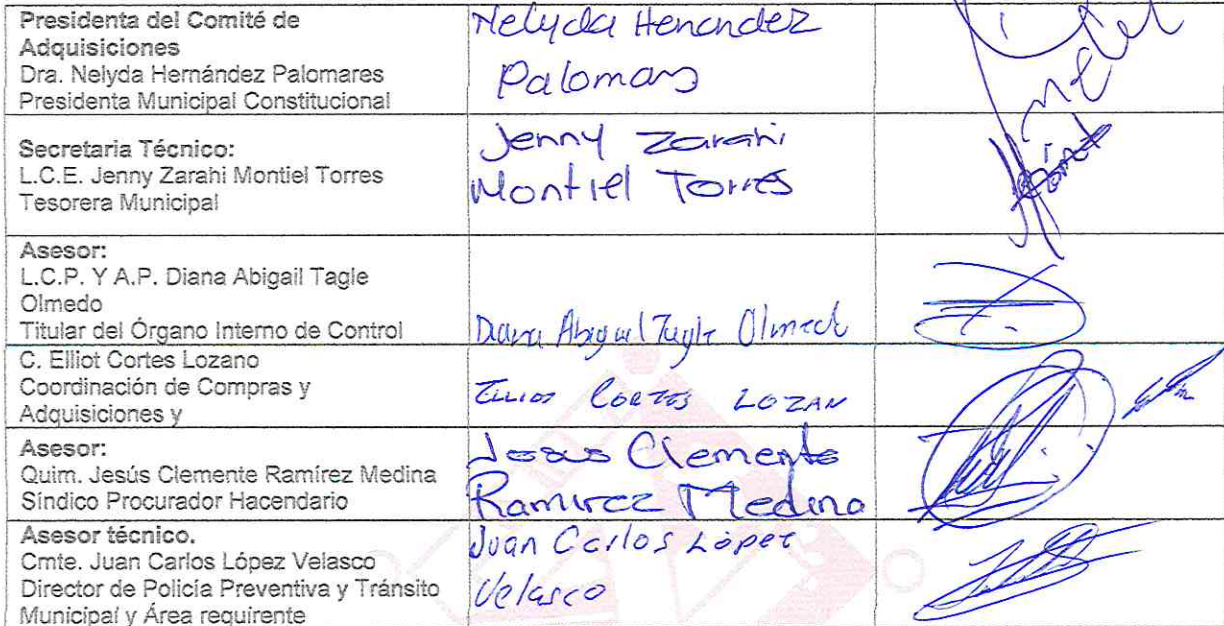 Presidenta del Comité de
Adquisiciones
Dra. Nelyda Hernández Palomares
Presidenta Municipal Constitucional
Nelyda Henandez
Palomars
Secretaria Técnico:
L.C.E. Jenny Zarahi Montiel Torres
Tesorera Municipal
Jenny Zarahi
Montiel Torres
Asesor:
L.C.P. Y A.P. Diana Abigail Tagle
Olmedo
Titular del Órgano Interno de Control
Diana Abigail Tagle Olmedo
C. Elliot Cortes Lozano
Coordinación de Compras y
Adquisiciones y
Elliot Cortes LOZAN
Asesor:
Quim. Jesús Clemente Ramírez Medina
Síndico Procurador Hacendario
Jesus Clemente
Ramirez Medina
Asesor técnico.
Cmte. Juan Carlos López Velasco
Director de Policía Preventiva y Tránsito
Municipal y Área requirente
Juan Carlos López
Velasco